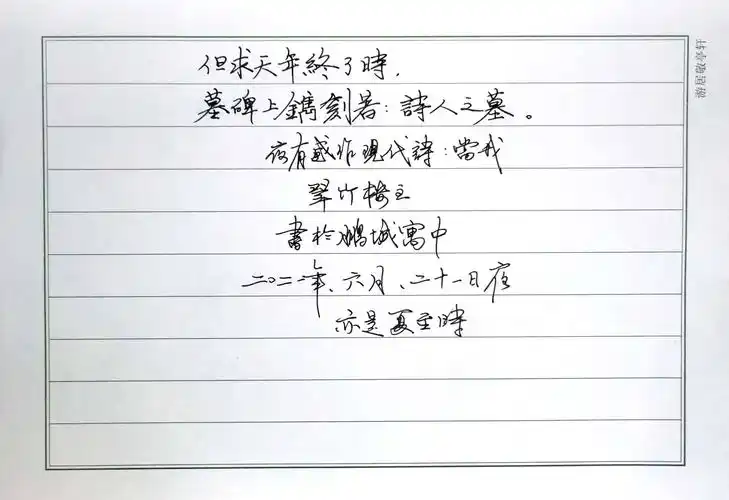 但求天年終了時，
墓碑上鐫刻著：詩人之墓。
夜有感作現代詩：當我
翠竹樓主
書於鵬城寓中
二〇二二年、六月、二十一日夜
亦是夏至時